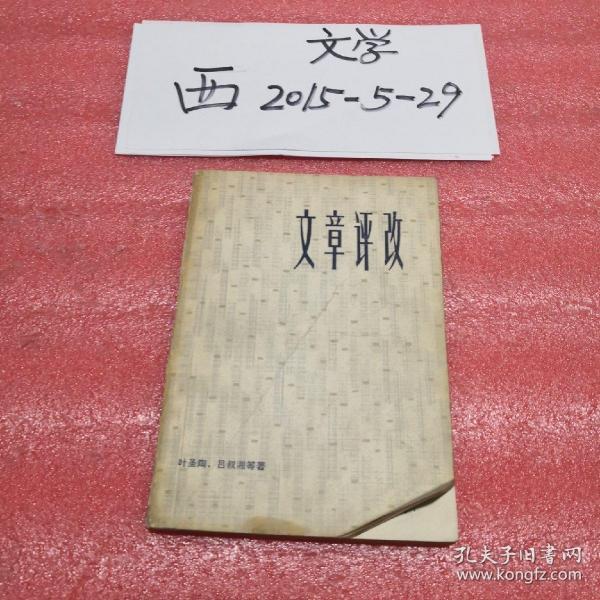 文学
西 2015-5-29
文章评改
叶圣陶、吕叔湘等著
孔夫子旧书网
www.kongfz.com